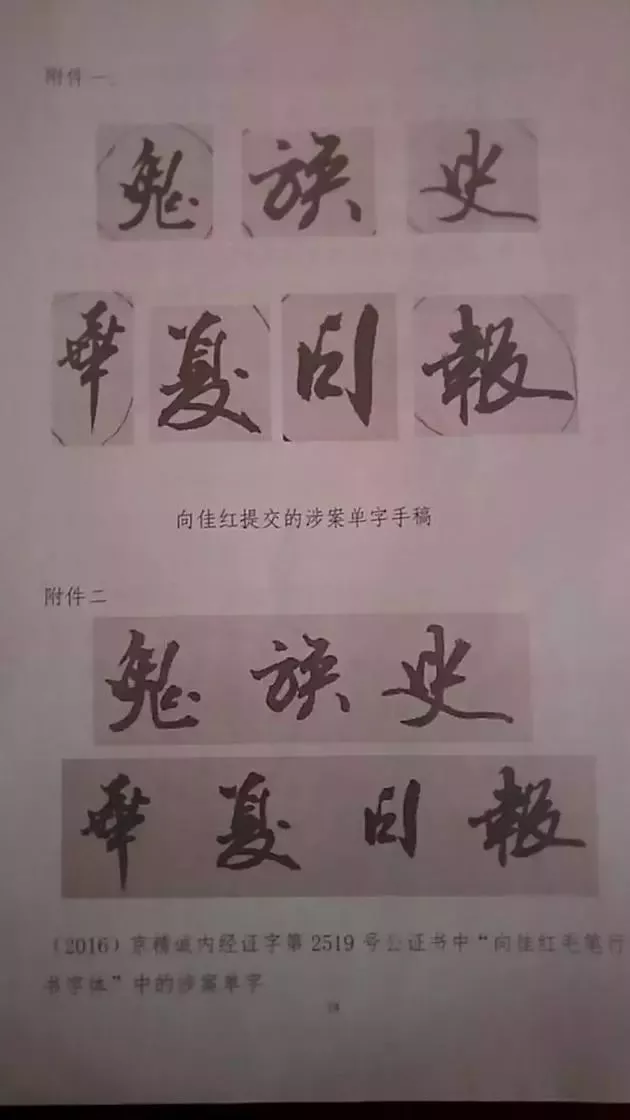 附件一
鬼族史
華夏日報
向佳红提交的涉案单字手稿
附件二
鬼族史
華夏日報
（2016）京精诚内经证字第2519号公证书中“向佳红毛笔行
书字体”中的涉案单字